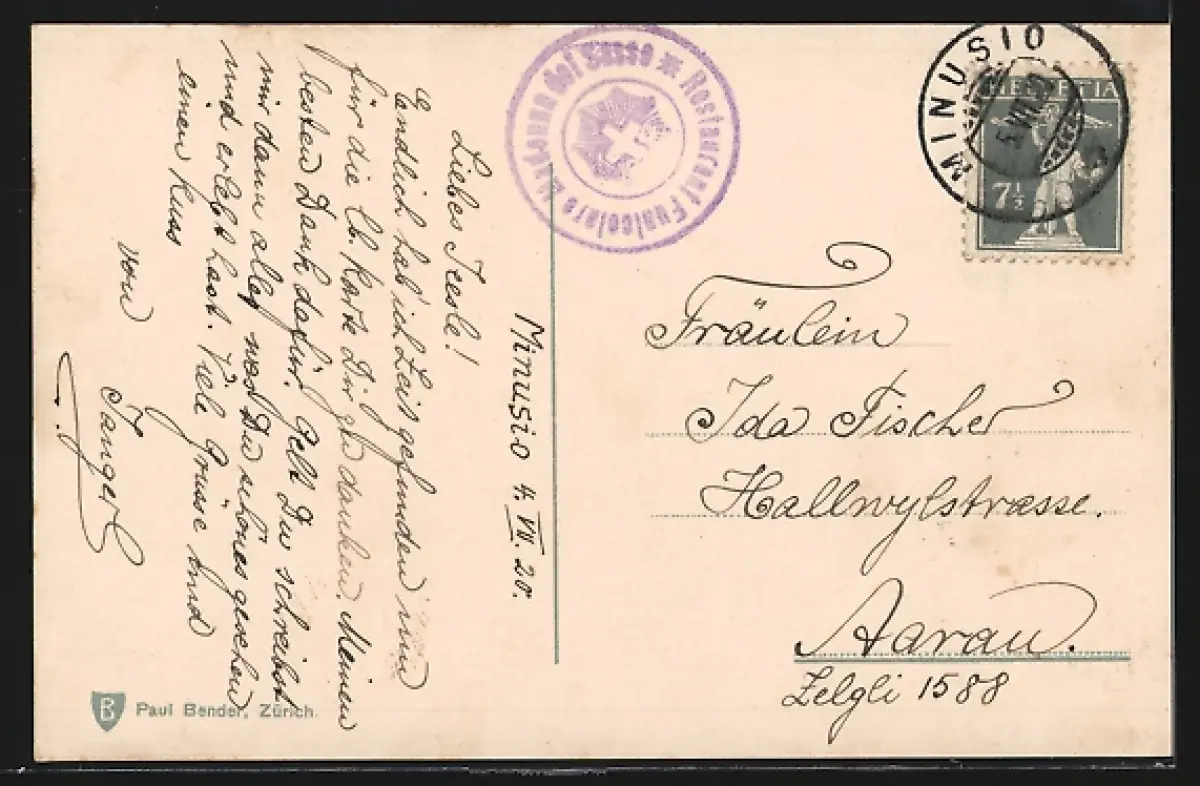 Minusio 4. VII. 20.
Liebes Idesle!
Endlich hab' ich Zeit gefunden um
für die lb. Karte Dir zu danken. Meinen
besten Dank dafür. Gelt Du schreibst
mir dann alles was Du schönes gesehen
und erlebt hast. Viele Grüsse und
einen Kuss
von
Paul Bender, Zürich.
B
Restaurant Funicolare Madonna del Sasso
MINUSIO
HELVETIA
7½
Fräulein
Ida Fischer
Hallwylstrasse.
Aarau.
Zelgli 1588